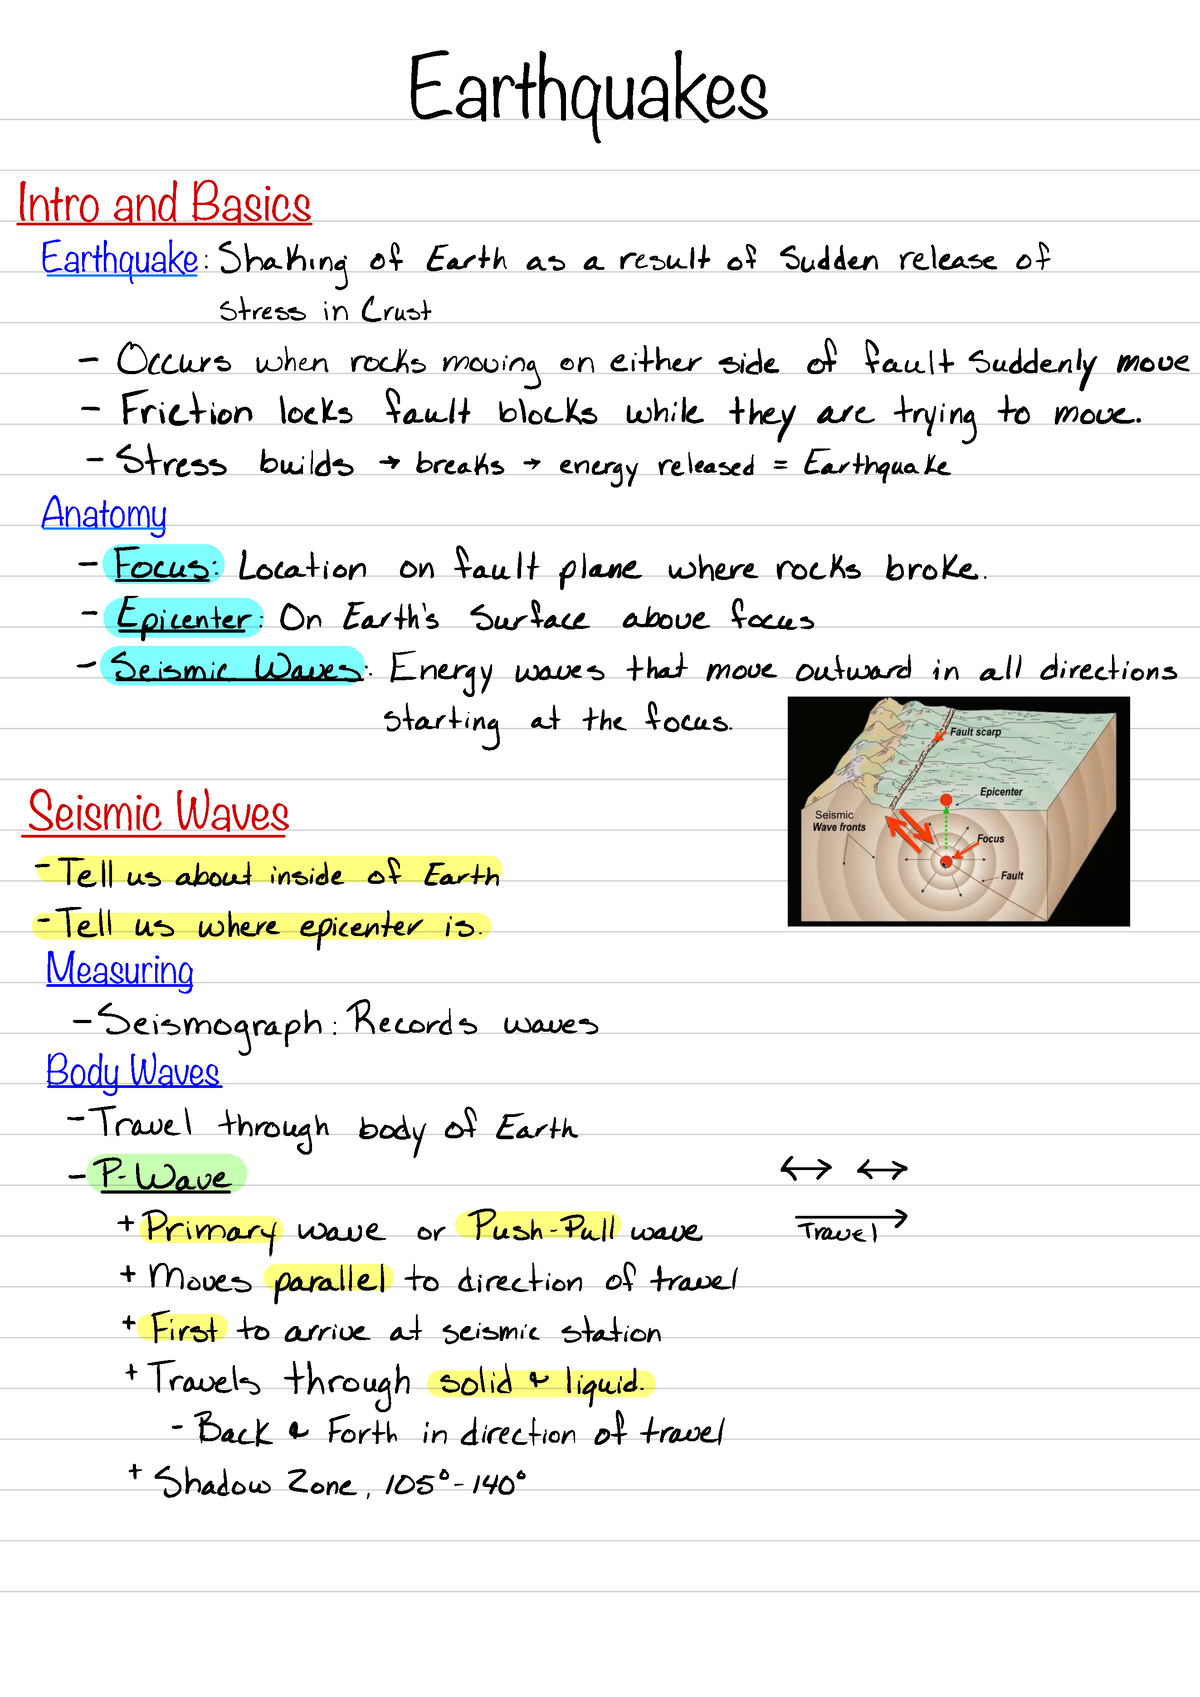 Earthquakes
Intro and Basics
Earthquake: Shaking of Earth as a result of Sudden release of
Stress in Crust
- Occurs when rocks moving on either side of fault Suddenly move
- Friction locks fault blocks while they are trying to move.
- Stress builds → breaks → energy released = Earthquake
Anatomy
- Focus: Location on fault plane where rocks broke.
- Epicenter: On Earth's Surface above focus
- Seismic Waves: Energy waves that move outward in all directions
starting at the focus.
Fault scarp
Epicenter
Seismic
Wave fronts
Focus
Fault
Seismic Waves
- Tell us about inside of Earth
- Tell us where epicenter is.
Measuring
- Seismograph: Records waves
Body Waves
- Travel through body of Earth
- P-Wave
+ Primary wave or Push-Pull wave
Travel
+ Moves parallel to direction of travel
+ First to arrive at seismic station
+ Travels through solid & liquid.
- Back & Forth in direction of travel
+ Shadow Zone, 105°-140°